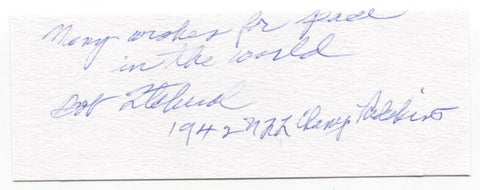 Many wishes for peace
in the world
Bob
1942 NFL Champ Redskins